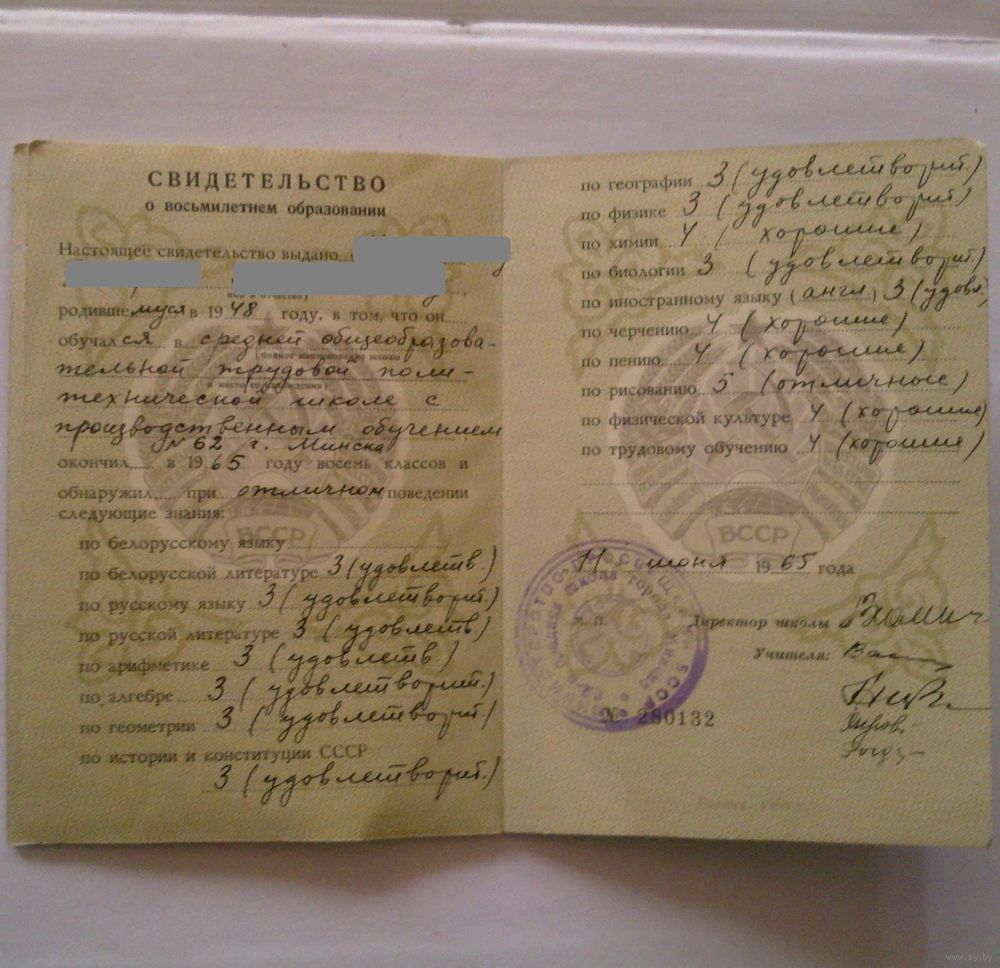 СВИДЕТЕЛЬСТВО
о восьмилетнем образовании
Настоящее свидетельство выдано
имя и отчество)
родившемуся в 1948 году, в том, что он
обучался в средней общеобразова-
(полное наименование школы
тельной трудовой поли-
и местонахождения)
технической школе с
производственным обучением
№ 62 г. Минска
окончил в 1965 году восемь классов и
обнаружил при отличном поведении
следующие знания:
по белорусскому языку
по белорусской литературе 3 (удовлетв.)
по русскому языку 3 (удовлетворит.)
по русской литературе 3 (удовлетв)
по арифметике 3 (удовлетв.)
по алгебре 3 (удовлетворит.)
по геометрии 3 (удовлетворит.)
по истории и конституции СССР
3 (удовлетворит.)
БССР
по географии 3 (удовлетворит.)
по физике 3 (удовлетворит)
по химии 4 (хорошие)
по биологии 3 (удовлетворит.)
по иностранному языку (англ) 3 (удовл.
по черчению 4 (хорошие)
по пению 4 (хорошие)
по рисованию 5 (отличные)
по физической культуре 4 (хорошие)
по трудовому обучению 4 (хорошие)
БССР
11 июня 1965 года
М. П.
Директор школы
Учителя:
№ 280132
www.ay.by